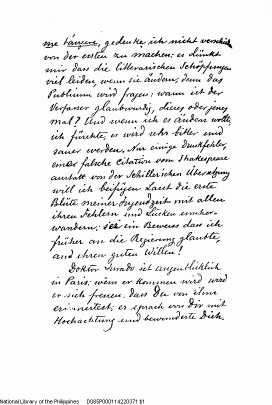 gedenke ich nicht
von der ersten zu machen; es dünkt
mir dass die litterarischen Schöpfungen
viel leiden, wenn sie ändern, denn das
Publicum wird fragen: wann ist der
Verfasser glaubwürdig, dieses oder jenes
mal? Und wenn ich es ändern wollte
ich fürchte, es wird sehr bitter und
sauer werden. Nur einige Druckfehler,
eine falsche Citation vom Shakespeare
anstatt von der Schiller'schen Übersetzung
will ich Lass die erste
Blüte meiner Jugendzeit mit allen
ihren Fehlern und Lücken umher-
wandern; ein Beweis dass ich
früher an die Regierung glaubte,
und ihren guten Willen!
Doktor ist augenblicklich
in Paris; wenn er kommen wird, wird
er sich freuen dass Du von ihm
erinnertest; er sprach von Dir mit
Hochachtung und bewunderte Dich.
National Library of the Philippines D085P000114220371 §1